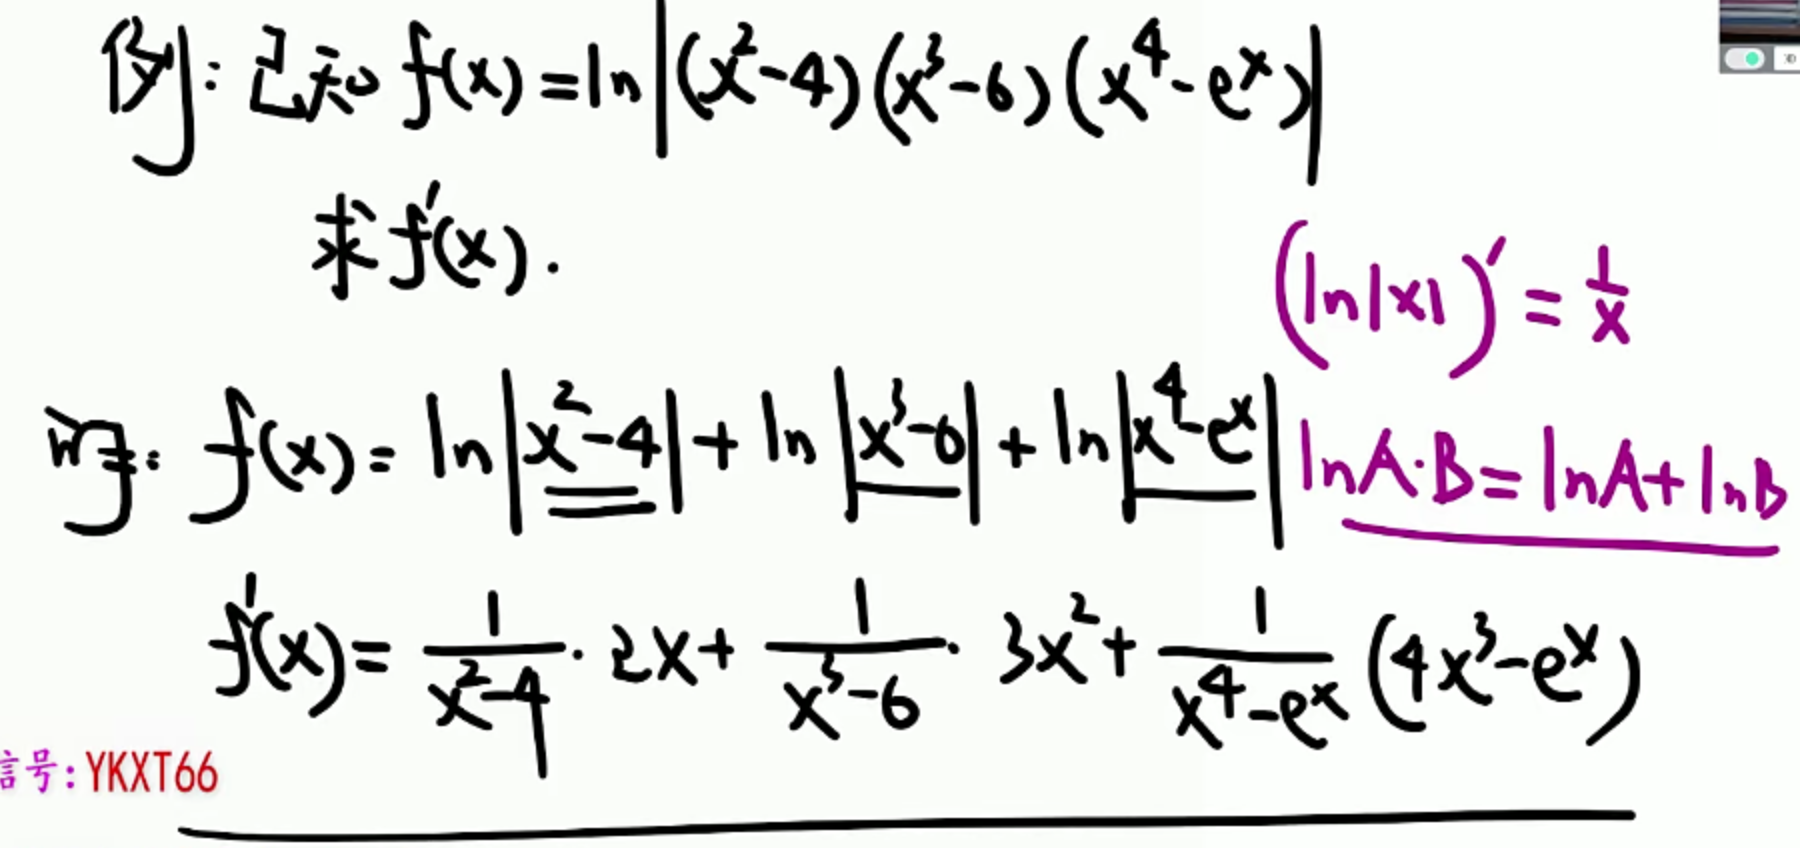 例:已知 f(x)=ln|(x²-4)(x³-6)(x⁴-eˣ)|
求f'(x).
(ln|x|)'=1/x
解: f(x)=ln|x²-4|+ln|x³-6|+ln|x⁴-eˣ|
lnA·B=lnA+lnB
f'(x)=1/(x²-4)·2x+1/(x³-6)·3x²+1/(x⁴-eˣ)(4x³-eˣ)
信号:YKXT66